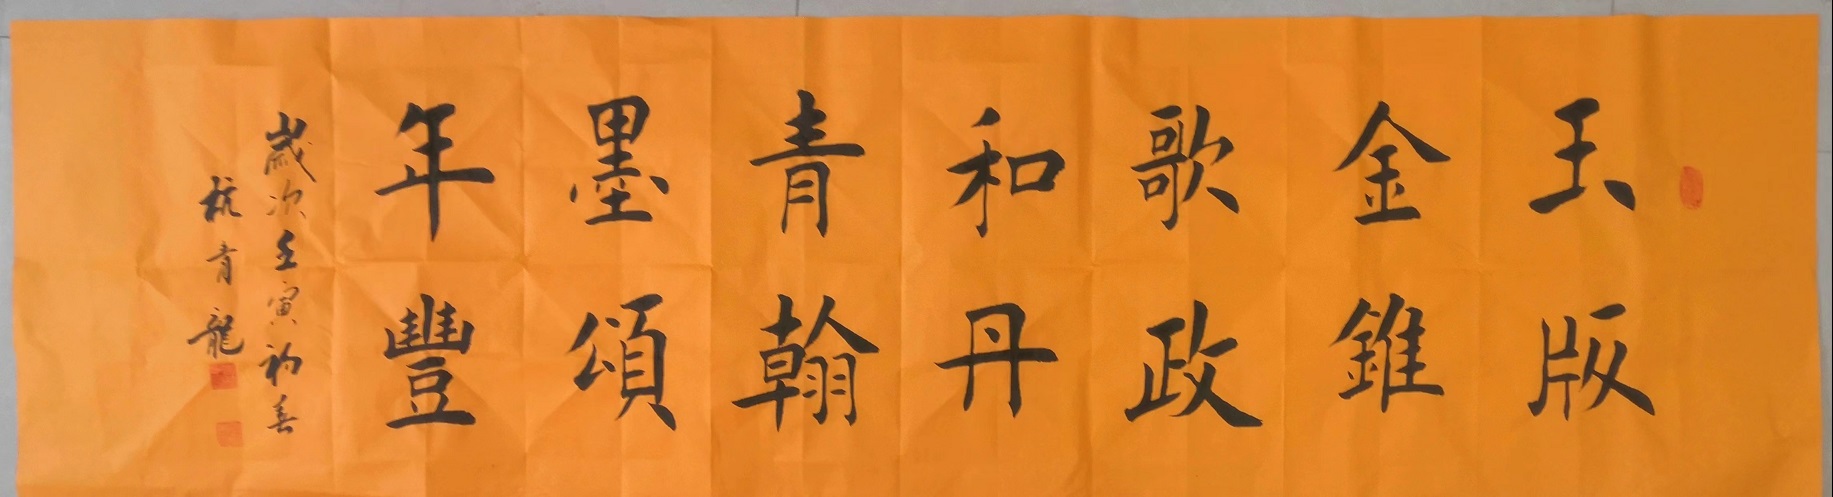 玉版
金錐
歌政
和丹
青翰
墨頌
年豐
歲次壬寅初春
杭青龍